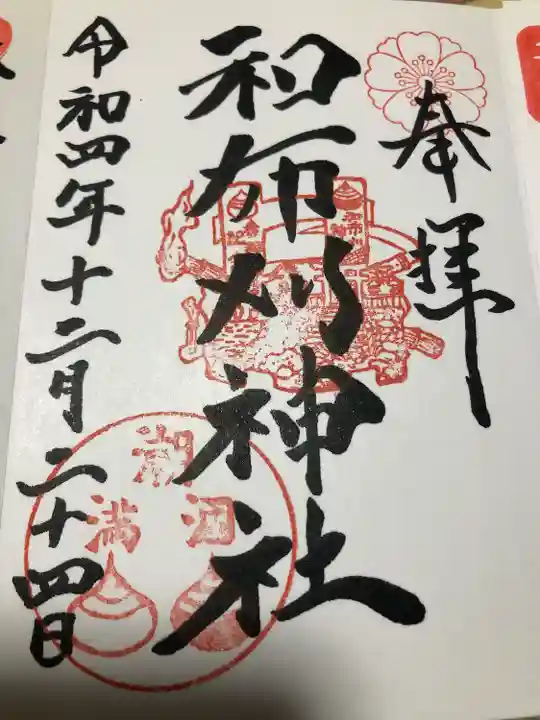 奉拝
和布刈神社
令和四年十二月二十四日
潮
満
涸